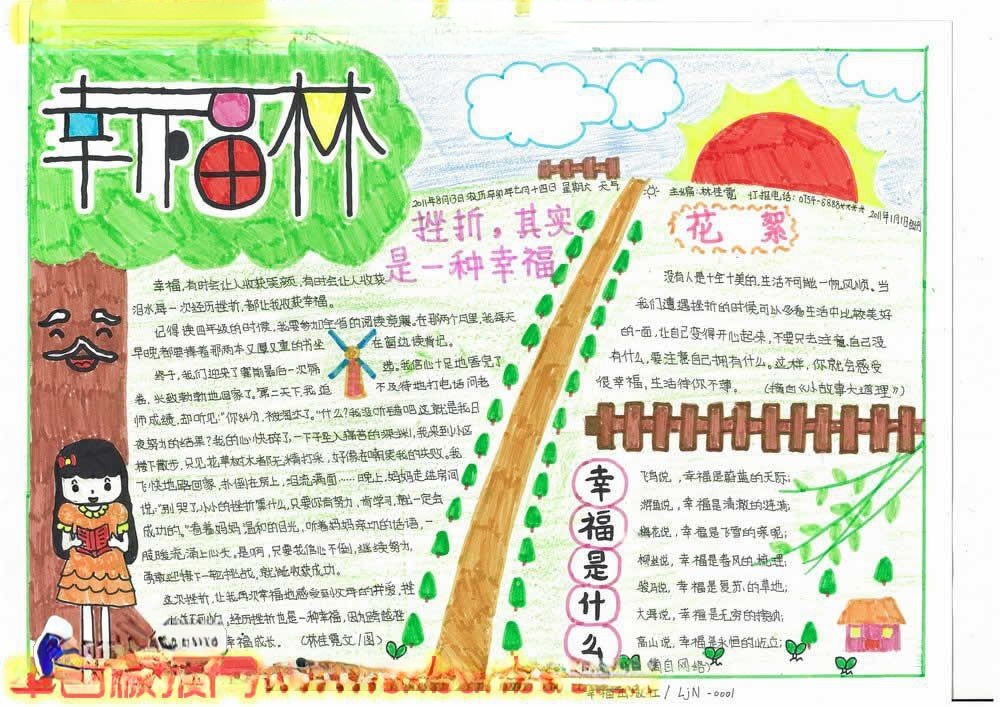 幸福林
2011年8月13日 农历辛卯年七月十四日 星期六 天气
主编：林佳霓 订报电话：0754-8888****
2011年1月1日创刊
挫折，其实
是一种幸福
幸福，有时会让人收获笑颜，有时会让人收获
泪水，每一次经历挫折，都让我收获幸福。
记得读四年级的时候，我要参加全省的阅读竞赛。在那两个月里，我每天
早晚都要捧着那两本又厚又重的书坐在窗边读背记。
终于，我们迎来了赛期最后一次
卷，兴致勃勃地回家了。第二天下，我迫不及待地打电话问老
师成绩，却听见：“你84分，被淘汰了。”“什么？我没听错吧，这就是我日
夜努力的结果？我的心快碎了，一下子坠入痛苦的深渊，我来到小区
楼下散步，只见花草树木都无精打采，好像在嘲笑我的失败，我
飞快地跑回家，扑倒在床上，泪流满面……晚上，妈妈走进房间
说：“别哭了，小小的挫折算什么，只要你肯努力，肯学习，就一定会
成功的。”看着妈妈温和的目光，听着妈妈亲切的话语，一
股暖流涌上心头。是啊，只要我信心不倒，继续努力，
勇敢迎接下一轮挑战，就能收获成功。
这次挫折，让我再次幸福地感受到父母的
经历挫折也是一种幸福，因为跨越挫
幸福成长。（林佳霓文/图）
花絮
没有人是十全十美的，生活不可能一帆风顺。当
我们遭遇挫折的时候可以多看生活中比较美好
的一面，让自己变得开心起来，不要只去注意自己没
有什么，要注意自己拥有什么。这样，你就会感受
很幸福，生活待你不薄。（摘自《小故事大道理》）
幸福是什么
飞鸟说，幸福是蔚蓝的天际；
游鱼说，幸福是清澈的涟漪；
梅花说，幸福是飞雪的亲昵；
柳丝说，幸福是春风的梳理；
骏马说，幸福是复苏的草地；
大海说，幸福是无穷的接纳；
高山说，幸福是永恒的屹立；
（摘自网络）
幸福出版社/LJN-0001